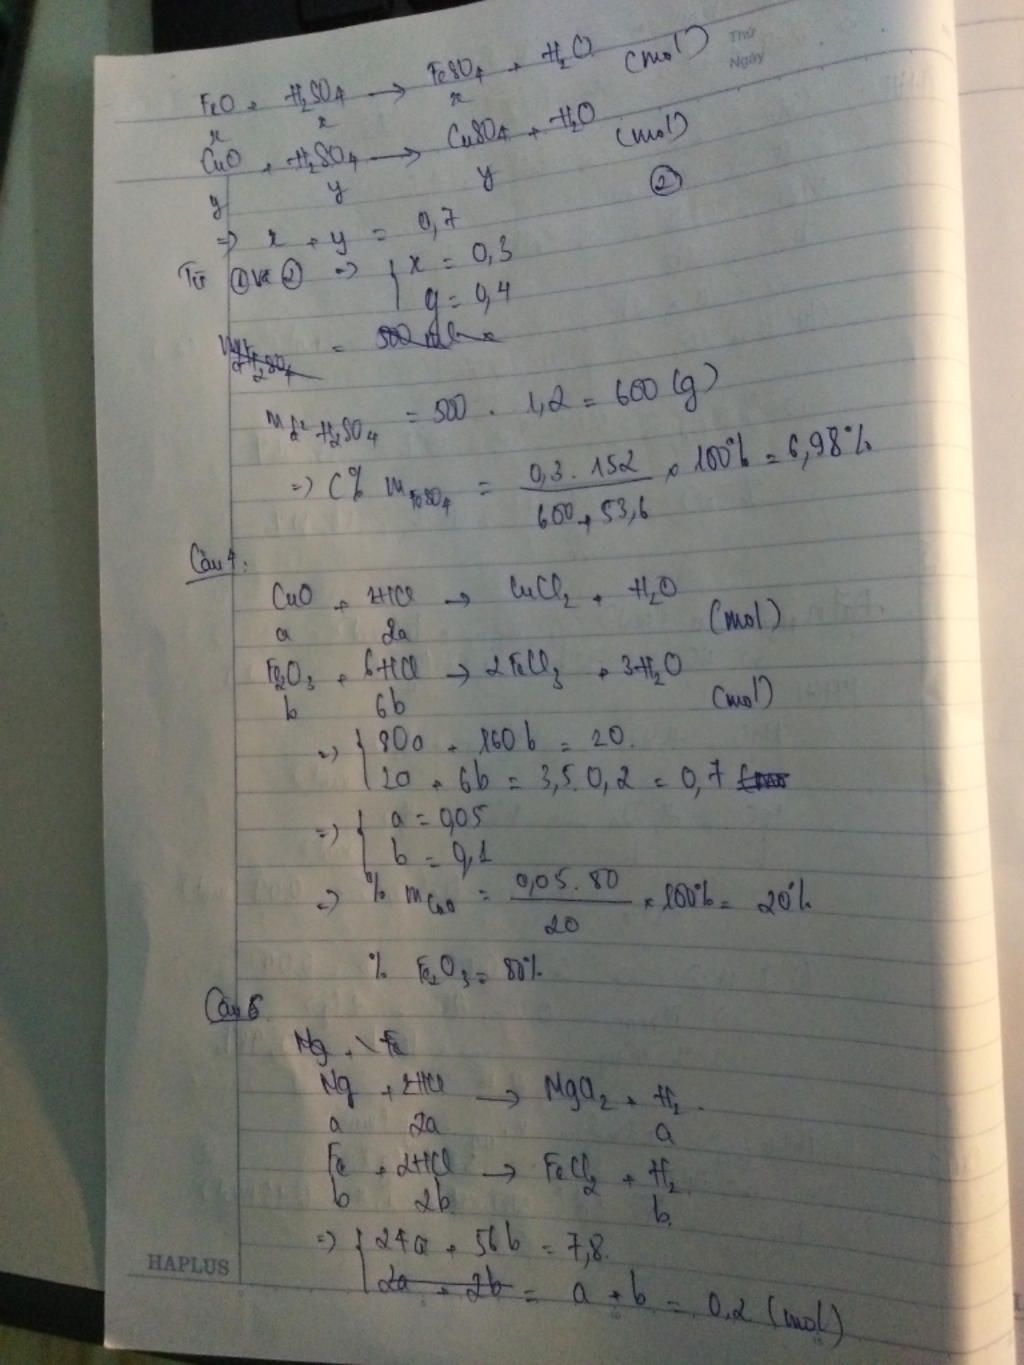 Thứ
Ngày
FeO + H₂SO₄ → FeSO₄ + H₂O (mol)
x x x
CuO + H₂SO₄ → CuSO₄ + H₂O (mol)
y y y
⇒ x + y = 0,7 ②
Từ ① và ② ⇒ { x = 0,3
y = 0,4
= 500
m H₂SO₄ = 500 . 1,2 = 600 (g)
⇒ C% m FeSO₄ = 0,3 . 152 / 600 + 53,6 × 100% = 6,98%
Câu 4:
CuO + 2HCl → CuCl₂ + H₂O (mol)
a 2a
Fe₂O₃ + 6HCl → 2FeCl₃ + 3H₂O (mol)
b 6b
⇒ { 80a + 160b = 20.
2a + 6b = 3,5.0,2 = 0,7
⇒ { a = 0,05
b = 0,1
⇒ % m CuO = 0,05 . 80 / 20 × 100% = 20%
% Fe₂O₃ = 80%
Câu 5
Mg, Fe
Mg + 2HCl → MgCl₂ + H₂.
a 2a a
Fe + 2HCl → FeCl₂ + H₂
b 2b b
⇒ { 24a + 56b = 7,8.
2a + 2b = a + b = 0,2 (mol)
HAPLUS